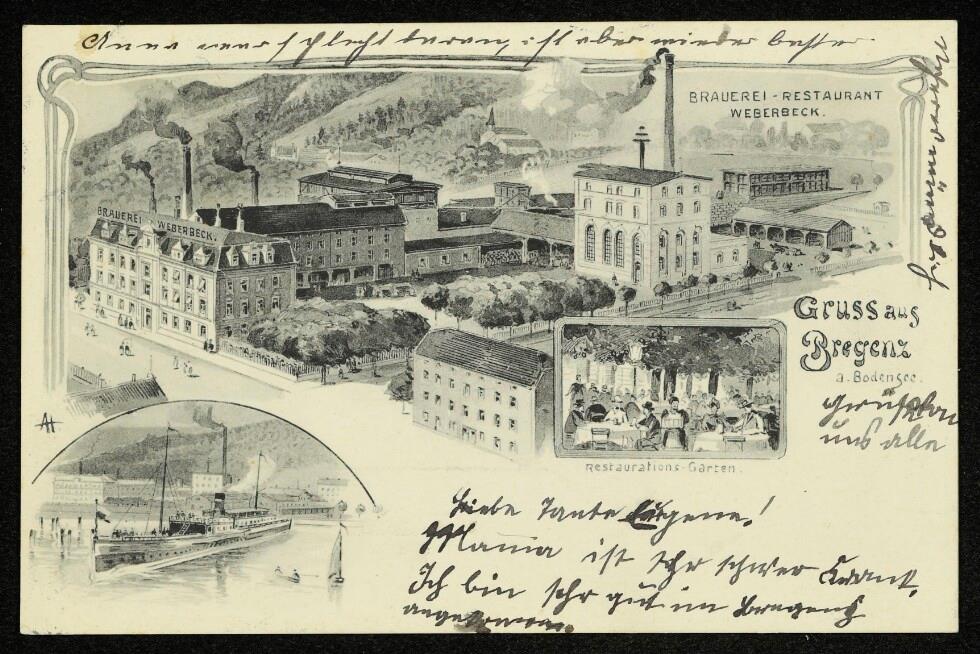 Anna war schlecht daran, ist aber wieder besser
BRAUEREI - RESTAURANT
WEBERBECK.
BRAUEREI WEBERBECK.
Gruss aus
Bregenz
a. Bodensee.
uns alle
AH
Restaurations-Garten.
Liebe Tante Eugene!
Mama ist sehr schwer krank.
Ich bin sehr gut in Bregenz
angekommen.